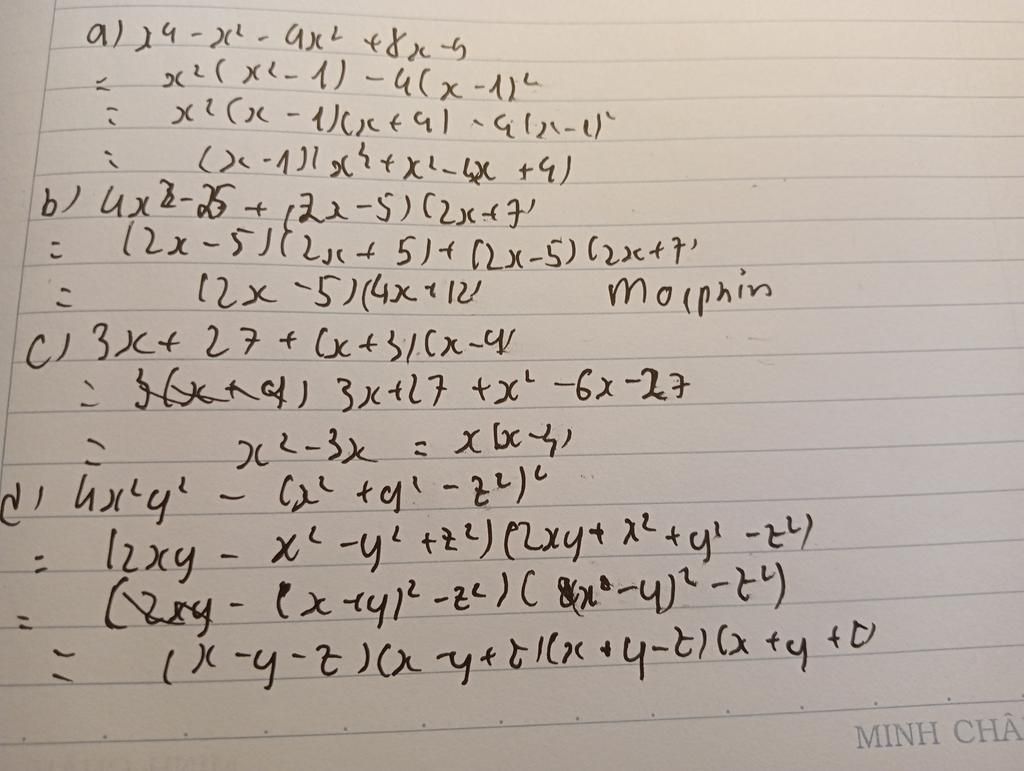 a) x4 - x² - 4x² + 8x - 4
= x² ( x² - 1) - 4 ( x - 1)²
= x² (x - 1)(x + 1) - 4 (x - 1)²
= (x - 1)( x³ + x² - 4x + 4)
b) 4x² - 25 + (2x - 5) (2x + 7)
= (2x - 5)(2x + 5) + (2x - 5) (2x + 7)
= (2x - 5)(4x + 12) Morphin
c) 3x + 27 + (x + 3) (x - 9)
= 3x + 27 + x² - 6x - 27
= x² - 3x = x (x - 3)
d) 4x²y² - (x² + y² - z²)²
= (2xy - x² - y² + z²) (2xy + x² + y² - z²)
= - (x + y)² - z²) ( (x - y)² - z²)
= (x - y - z )(x - y + z)(x + y - z) (x + y + z)
MINH CHÂ